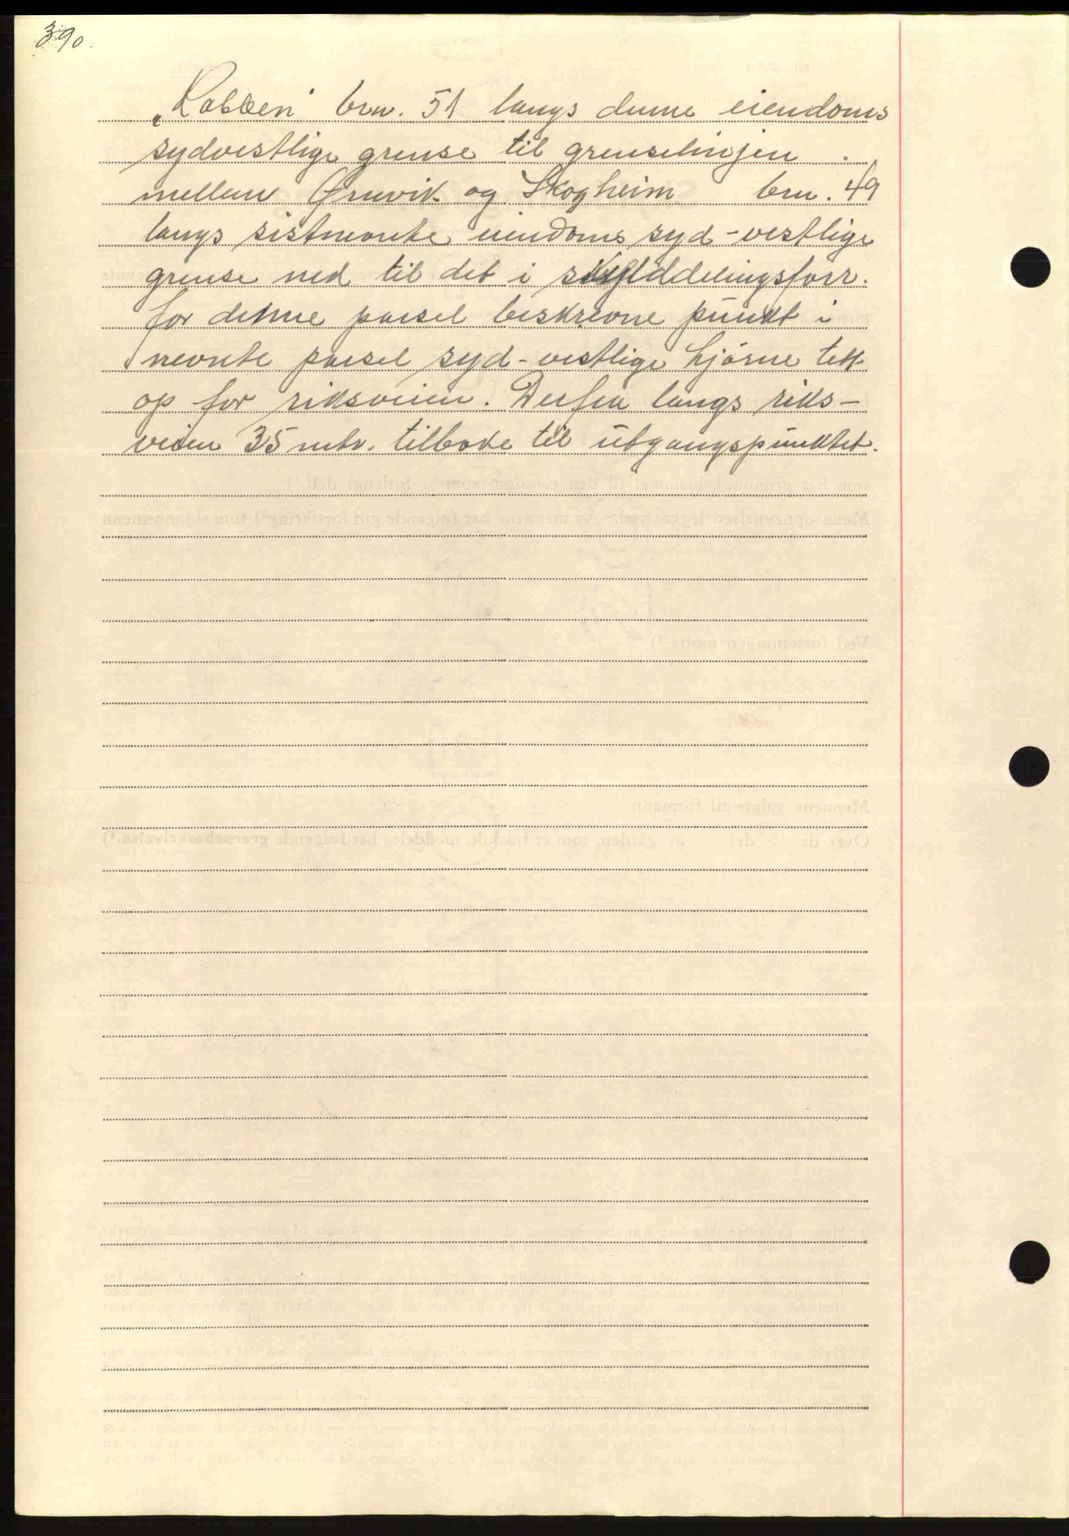 390.
„Rabben" brn. 51 langs denne eiendoms
sydvestlige grense til grenselinjen .
mellem Ørnvik og Skogheim brn. 49
langs sistnevnte eiendoms syd-vestlige
grense ned til det i skylddelingsforr.
for denne parsel beskrevne punkt i
nevnte parsel syd-vestlige hjørne tett
op for riksveien. Derfra langs riks-
veien 35 mtr. tilbake til utgangspunktet.